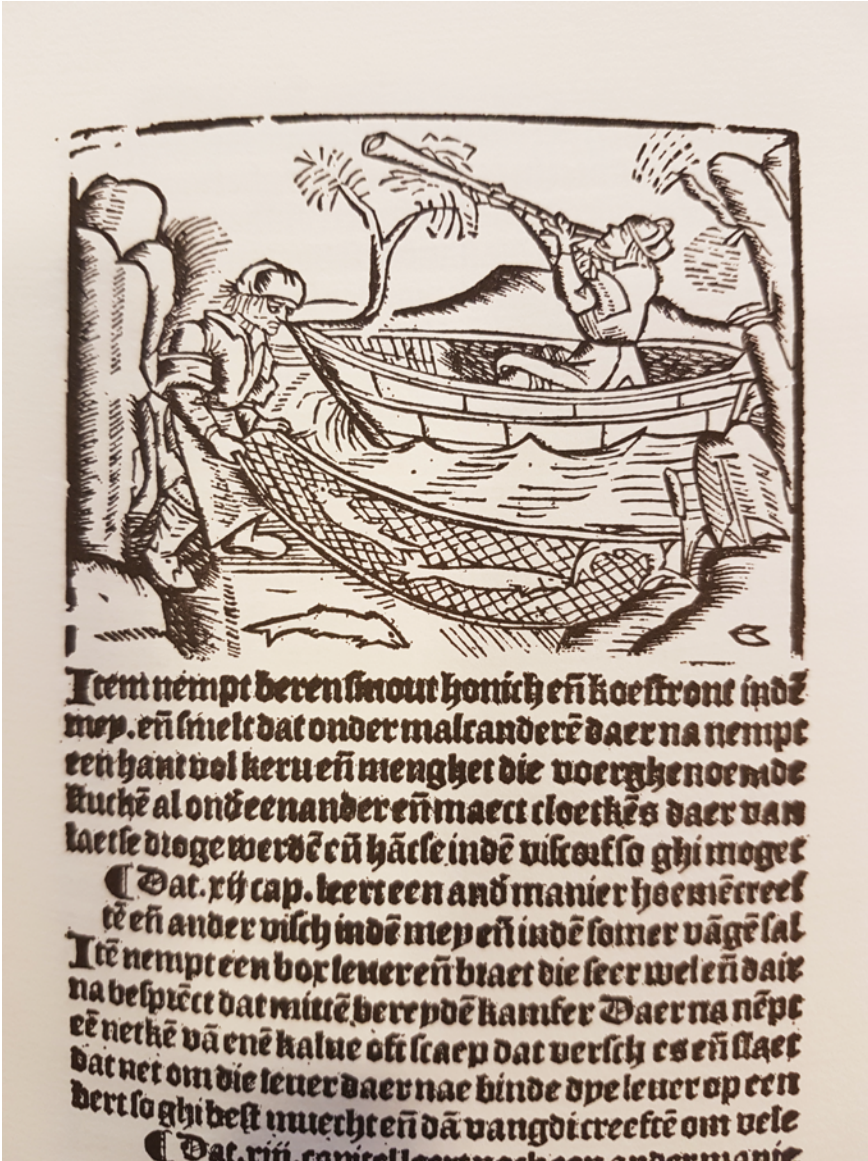 Item nempt beren smout honich en̄ koestront indē
mey. en̄ smelt dat onder malcanderē daer na nempt
een hant vol keru en̄ menghet die voerghenoemde
stuckē al ond̄ eenander en̄ maect cloetkēs daer van
laetse droge werdē en̄ hāctse indē viscorf so ghi moget
¶ Dat. xij cap. leert een and̄ manier hoemē creef
tē en̄ ander visch indē mey en̄ indē somer vāgē sal
Itē nempt een box leuer en̄ braet die seer wel en̄ daer
na besprēct dat mittē bereydē kamfer Daer na nēpt
eē netkē vā enē kalue oft scaep dat versch es en̄ slaet
dat net om die leuer daer nae binde dye leuer op een
bert so ghi best muecht en̄ dā vangdi creeftē om vele
¶ Dat. xiij. capitel leert noch een ander manie